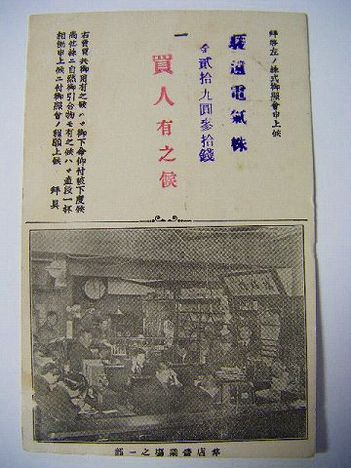 拜啓左ノ株式御照會申上候
駿遠電氣株
金貳拾九圓參拾錢
一 買人有之候
右賣買共御用有之候ハヾ御下命仰付被下度候
尚他株ニ自然御引合物モ有之候ハヾ直段一杯
相働申上候ニ付御照會ノ程願上候 拜具
弊店營業塲之一部